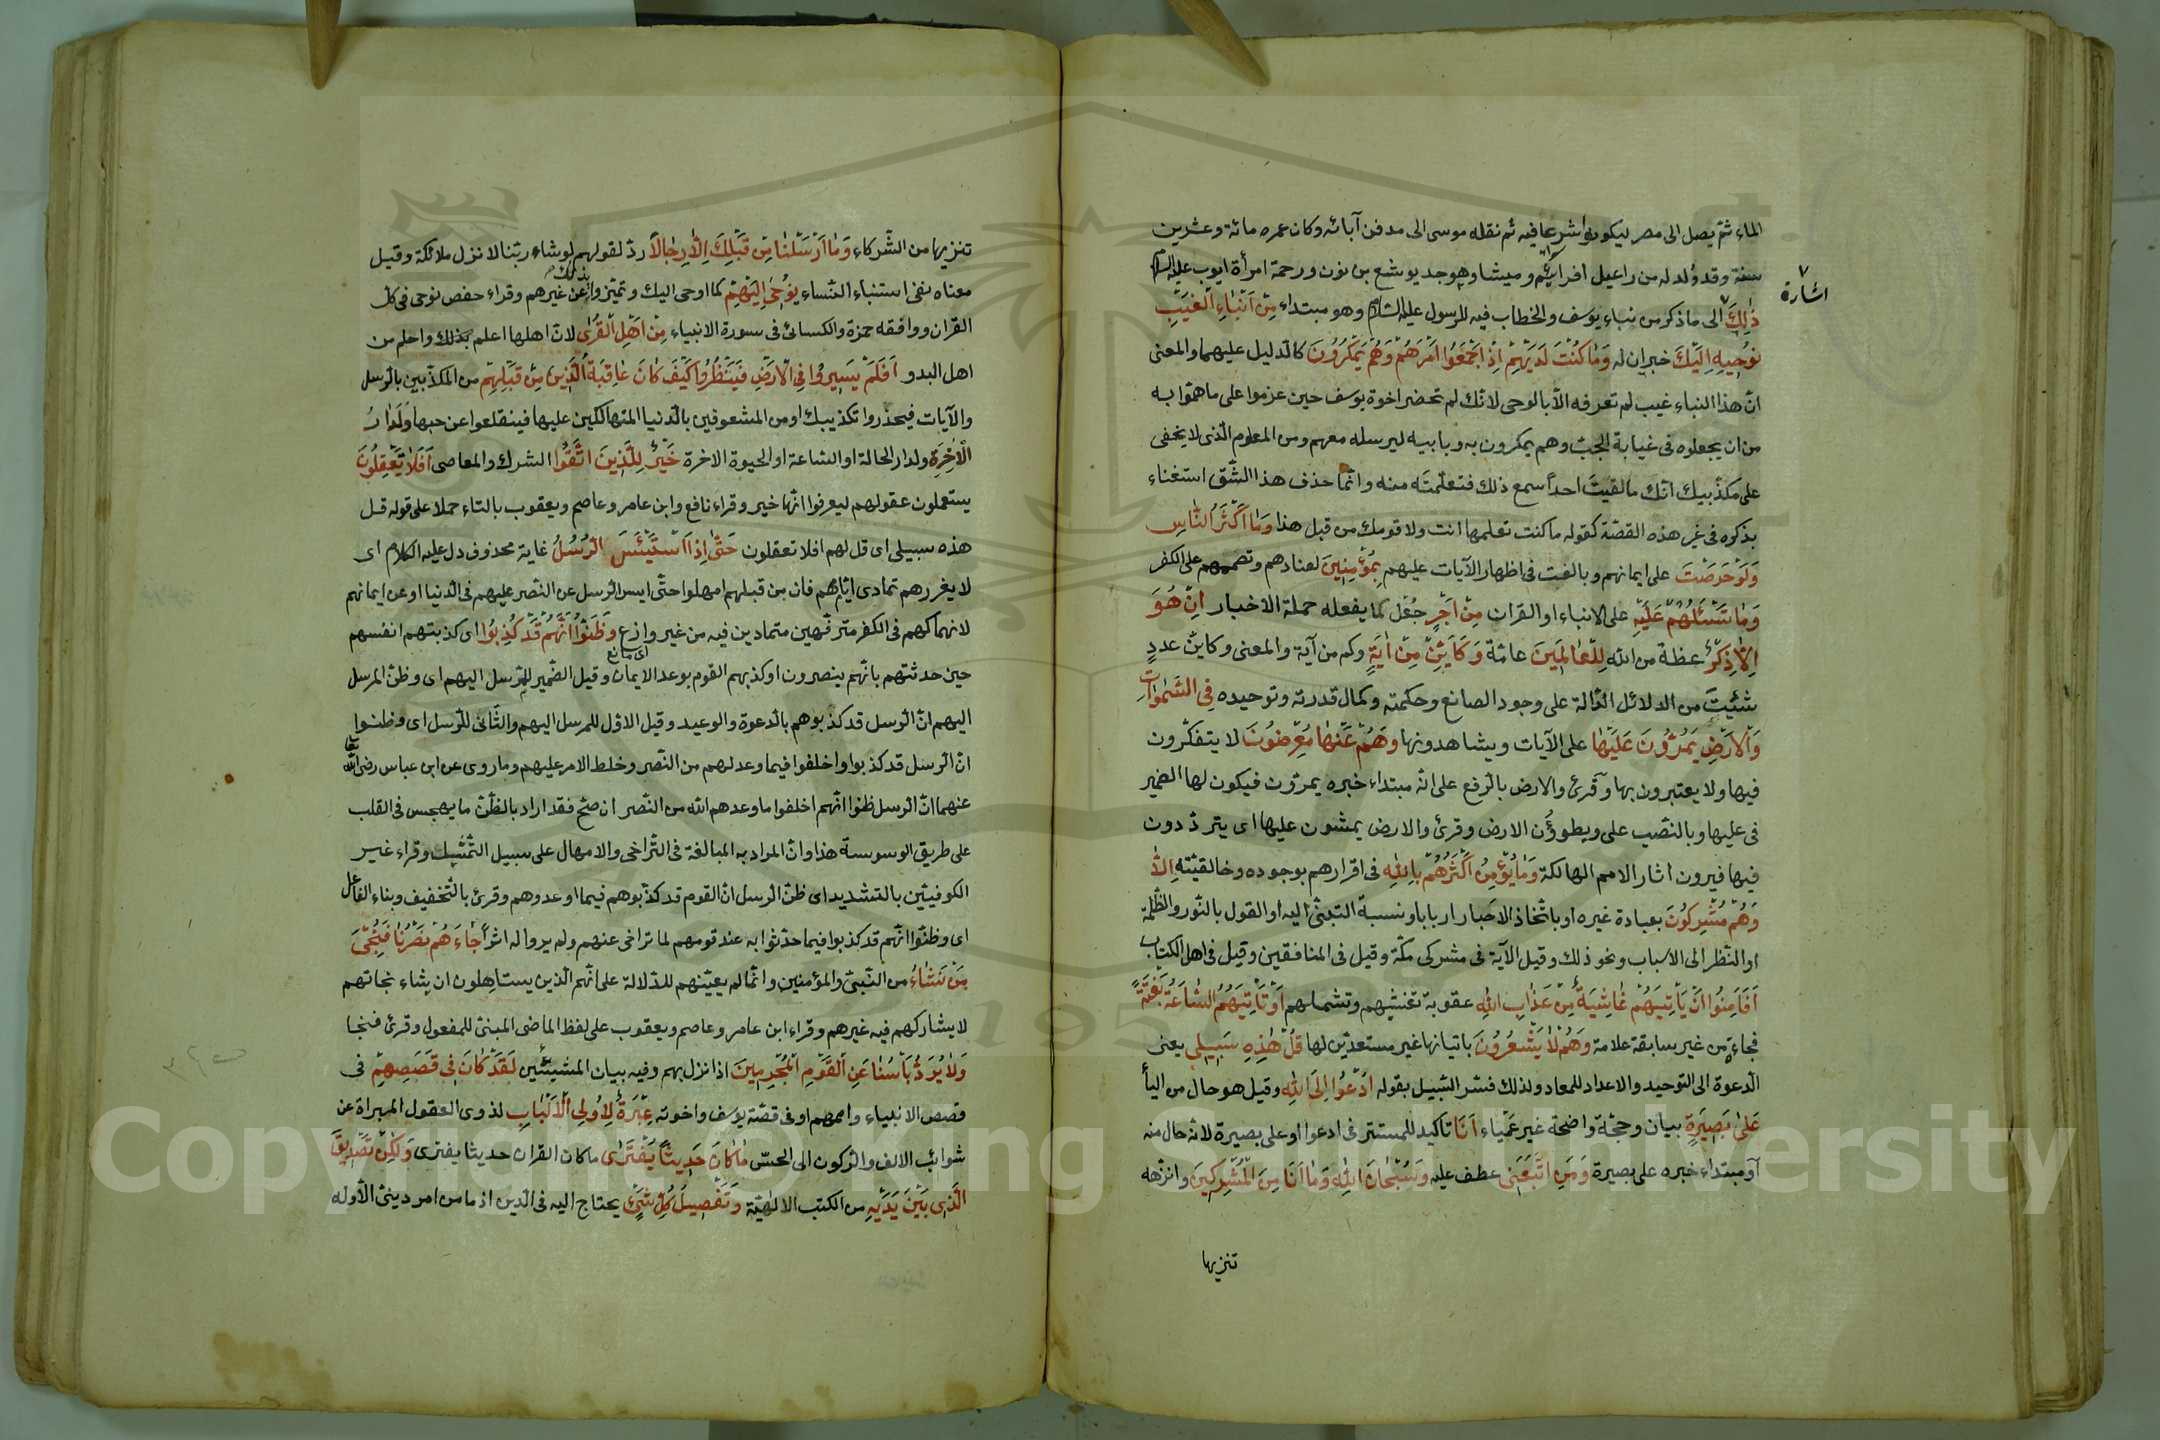 الماء ثم يصل الى مصر ليكونوا شرعا فيه ثم نقله موسى الى مدفن آبائه وكان عمره مائة وعشرين
سنة وقد ولد له من راعيل افراييم وميشا وهو جد يوشع بن نون ورحمة امرأة ايوب عليه السلام
اشارة
ذٰلِكَ الى ما ذكر من نباء يوسف والخطاب فيه للرسول عليه السلام وهو مبتداء مِنْ اَنْبَاءِ الْغَيْبِ
نُوحِيهِ اِلَيْكَ خبران له وَمَا كُنْتَ لَدَيْهِمْ اِذْ اَجْمَعُوا اَمْرَهُمْ وَهُمْ يَمْكُرُونَ كالدليل عليهما والمعنى
انّ هذا النباء غيب لم تعرفه الّا بالوحى لانك لم تحضر اخوة يوسف حين عزموا على ما همّوا به
من ان يجعلوه فى غيابة الجبّ وهم يمكرون به وبابيه ليرسله معهم ومن المعلوم الّذى لا يخفى
على مكذّبيك انّك ما لقيت احداً سمع ذلك فتعلّمته منه وانّما حذف هذا الشّق استغناء
بذكره فى غير هذه القصّة كقوله ما كنت تعلمها انت ولا قومك من قبل هذا وَمَا اَكْثَرُ النَّاسِ
وَلَوْ حَرَصْتَ على ايمانهم وبالغت فى اظهار الآيات عليهم بِمُؤْمِنِينَ لعنادهم وتصميمهم على الكفر
وَمَا تَسْـَٔلُهُمْ عَلَيْهِ على الانباء او القران مِنْ اَجْرٍ جُعْل كما يفعله حملة الاخبار اِنْ هُوَ
اِلَّا ذِكْرٌ عظة من الله لِلْعَالَمِينَ عامّة وَكَاَيِّنْ مِنْ اٰيَةٍ وكم من آية والمعنى وكاين عدد
شئيت من الدلائل الدّالة على وجود الصانع وحكمته وكمال قدرته وتوحيده فِى السَّمٰوَاتِ
وَالْاَرْضِ يَمُرُّونَ عَلَيْهَا على الآيات ويشاهدونها وَهُمْ عَنْهَا مُعْرِضُونَ لا يتفكّرون
فيها ولا يعتبرون بها وقرئ والارض بالرفع على انّه مبتداء خبره يمرّون فيكون لها الضمير
فى عليها وبالنّصب على ويطوؤن الارض وقرئ والارض يمشون عليها اى يتردّدون
فيها فيرون اثار الامم الهالكة وَمَا يُؤْمِنُ اَكْثَرُهُمْ بِاللّٰهِ فى اقرارهم بوجوده وخالقيّته اِلَّا
وَهُمْ مُشْرِكُونَ بعبادة غيره او باتّخاذ الاحبار اربابا ونسبة التبنّى اليه او القول بالنّور والظّلمة
او النّظر الى الاسباب ونحو ذلك وقيل الآية فى مشركى مكّة وقيل فى المنافقين وقيل فى اهل الكتاب
اَفَاَمِنُوا اَنْ يَأْتِيَهُمْ غَاشِيَةٌ مِنْ عَذَابِ اللّٰهِ عقوبة تغشيهم وتشملهم اَوْ تَأْتِيَهُمُ السَّاعَةُ بَغْتَةً
فجاءة من غير سابقة علامة وَهُمْ لَا يَشْعُرُونَ باتيانها غير مستعدّين لها قُلْ هٰذِهِ سَبِيلِى يعنى
الدعوة الى التوحيد والاعداد للمعاد ولذلك فسّر السّبيل بقوله اَدْعُوا اِلَى اللّٰهِ وقيل هو حال من اليأ
عَلٰى بَصِيرَةٍ بيان وحجّة واضحة غير عمياء اَنَا تاكيد للمستتر فى ادعوا او على بصيرة لانّه حال منه
او مبتداء خبره على بصيرة وَمَنِ اتَّبَعَنِى عطف عليه وَسُبْحَانَ اللّٰهِ وَمَا اَنَا مِنَ الْمُشْرِكِينَ وانزّهه
تنزيها
تنزيها من الشّركاء وَمَا اَرْسَلْنَا مِنْ قَبْلِكَ اِلَّا رِجَالًا ردّ لقولهم لو شاء ربّنا لانزل ملائكة وقيل
معناه نفى استنباء النّساء يُوحٰى اِلَيْهِمْ كما اوحى اليك وتميّزوا بذلك عن غيرهم وقراء حفص نوحى فى كل
القران ووافقه حمزة والكسائى فى سورة الانبياء مِنْ اَهْلِ الْقُرٰى لانّ اهلها اعلم بذلك واحلم من
اهل البدو اَفَلَمْ يَسِيرُوا فِى الْاَرْضِ فَيَنْظُرُوا كَيْفَ كَانَ عَاقِبَةُ الَّذِينَ مِنْ قَبْلِهِمْ من المكذّبين بالرّسل
والآيات فيحذروا تكذيبك او من المشعوفين بالدّنيا المتهالكين عليها فينقلعوا عن حبها وَلَدَارُ
الْاٰخِرَةِ ولدار الحالة او السّاعة او الحيوة الاخرة خَيْرٌ لِلَّذِينَ اتَّقَوْا الشرك والمعاصى اَفَلَا تَعْقِلُونَ
يستعملون عقولهم ليعرفوا انّها خير وقراء نافع وابن عامر وعاصم ويعقوب بالتاء حملا على قوله قل
هذه سبيلى اى قل لهم افلا تعقلون حَتّٰى اِذَا اسْتَيْـَٔسَ الرُّسُلُ غاية محذوف دل عليه الكلام اى
لا يغررهم تمادى ايّامهم فان من قبلهم امهلوا حتّى ايس الرّسل عن النّصر عليهم فى الدّنيا او عن ايمانهم
لانهماكهم فى الكفر مترفّهين متمادين فيه من غير وازع وَظَنُّوا اَنَّهُمْ قَدْ كُذِبُوا اى كذبتهم انفسهم
اى مانع
حين حدثتهم بانّهم ينصرون او كذبهم القوم بوعد الايمان وقيل الضّمير للمرسل اليهم اى وظنّ المرسل
اليهم انّ الرسل قد كذبوهم بالدعوة والوعيد وقيل الاوّل للمرسل اليهم والثّانى للرّسل اى وظنوا
انّ الرسل قد كذبوا واخلفوا فيما وعد لهم من النّصر وخلط الامر عليهم وما روى عن ابن عباس رضى الله تعالى
عنهما انّ الرسل ظنوا انّهم اخلفوا ما وعدهم الله من النّصر ان صحّ فقد اراد بالظّنّ ما يهجس فى القلب
على طريق الوسوسة هذا وانّ المراد به المبالغة فى التّراخى والامهال على سبيل التّمثيل وقراء غير
الكوفيّين بالتشديد اى ظنّ الرسل انّ القوم قد كذّبوهم فيما اوعدوهم وقرئ بالتّخفيف وبناء الفاعل
اى وظنّوا انّهم قد كذبوا فيما حدّثوا به عند قومهم لما تراخى عنهم ولم يروا له اثراً جَاءَهُمْ نَصْرُنَا فَنُجِّىَ
مَنْ نَشَاءُ من النّبىّ والمؤمنين وانّما لم يعيّنهم للدّلالة على انّهم الّذين يستاهلون ان يشاء نجاتهم
لا يشاركهم فيه غيرهم وقراء ابن عامر وعاصم ويعقوب على لفظ الماضى المبنىّ للمفعول وقرئ فنجا
وَلَا يُرَدُّ بَاْسُنَا عَنِ الْقَوْمِ الْمُجْرِمِينَ اذا نزل بهم وفيه بيان المشيئين لَقَدْ كَانَ فِى قَصَصِهِمْ فى
قصص الانبياء واممهم او فى قصّة يوسف واخوته عِبْرَةٌ لِاُولِى الْاَلْبَابِ لذوى العقول المبراة عن
شوائب الالف والرّكون الى الحسّ مَا كَانَ حَدِيثًا يُفْتَرٰى ما كان القران حديثا يفترى وَلٰكِنْ تَصْدِيقَ
الَّذِى بَيْنَ يَدَيْهِ من الكتب الالهيّة وَتَفْصِيلَ كُلِّ شَىْءٍ يحتاج اليه فى الدّين اذ ما من امر دينىّ الّا وله
Copyright © King Saud University